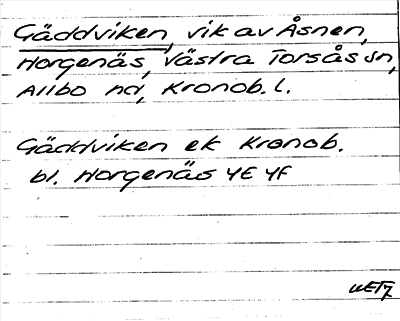 Gäddviken, vik av Åsnen,
Horgenäs, Västra Torsås sn,
Allbo hd, Kronob. l.
Gäddviken ek Kronob.
bl. Horgenäs 4E 4F